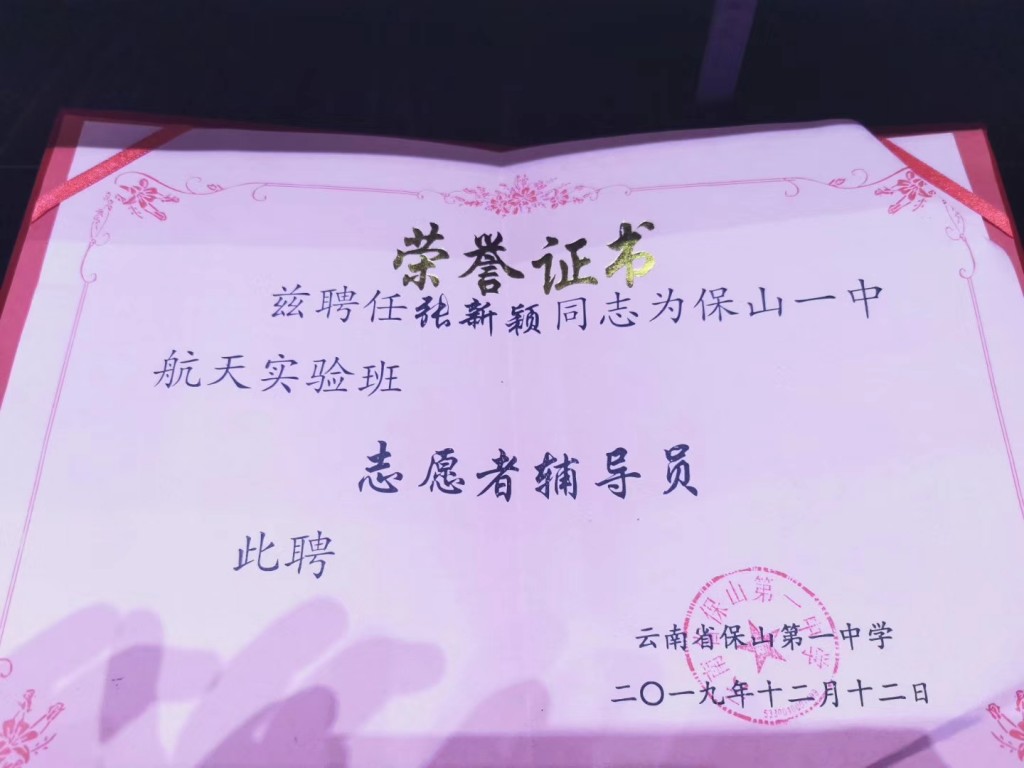 荣誉证书
兹聘任张新颖同志为保山一中
航天实验班
志愿者辅导员
此聘
云南省保山第一中学
二〇一九年十二月十二日